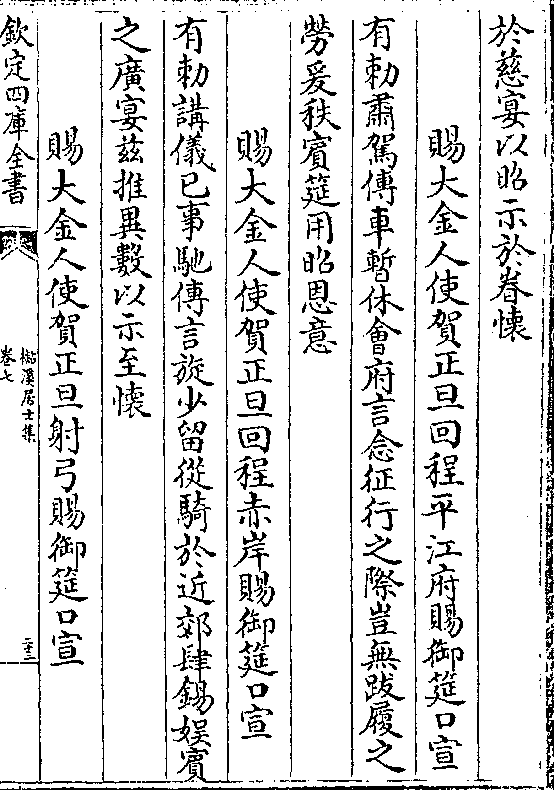 於慈宴以昭示於眷懷
賜大金人使賀正旦回程平江府賜御筵口宣
有勅肅駕傳車暫休會府言念征行之際豈無跋履之
勞爰秩賓筵用昭恩意
賜大金人使賀正旦回程赤岸賜御筵口宣
有勅講儀已事馳傳言旋少留從騎於近郊肆錫娱賓
之廣宴茲推異數以示至懷
賜大金人使賀正旦射弓賜御筵口宣
欽定四庫全書
溪居士集
卷七
二十三